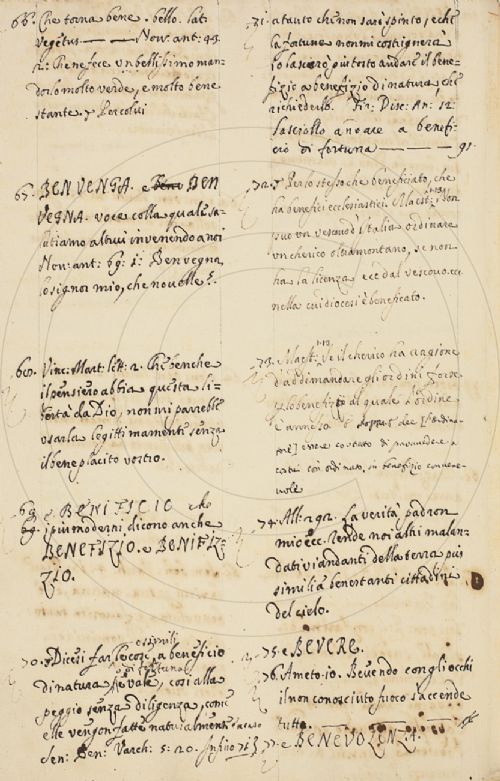 66. Che torna bene. bello. lat.
vegetus — Nov: ant: 43.
2: Bene fece un bellissimo man-
dorlo molto verde, e molto bene
stante.
67. BENVENGA. e BEN
VEGNA. voce colla quale sa-
lutiamo altrui in venendo a noi
Nov: ant: 69: 1: Benvegna,
lo signor mio, che novelle?
68. Vinc: Mart: lett: 2. Che benche
il pensiero abbia questa li-
bertà da Dio, non mi parrebbe
usarla legittimamente senza
il beneplacito vostro.
69. e BENIFICIO che
i più moderni dicono anche
BENEFIZIO. e BENIFIZ-
ZIO.
70. Dicesi far le cose a benefício
e simili
di fortuna
di natura e vale, così alla
peggio senza diligenza, come
elle vengon fatte naturalmente
Sen: Ben: Varch: 5: 20.
71. a tanto ch'i' non sarò spinto, e che
la fortuna non mi costrignerà
io lascerò piuttosto andare il bene-
fizio a benefizio di natura, che
richiederlo. Fir: Disc: An: 12:
lasciollo andare a benefi-
cio di fortuna — 91.
72. Per lo stesso che beneficiato, che
ha benefici ecclesiastici. Maest:
può un vescovo d'Italia ordinare
un cherico oltramontano, se non
ha la licenza ecc dal vescovo ecc
nella cui diocesi è beneficato.
73. Maest: Se il cherico ha cagione
d'addimandare gli ordini forse
per lo benefizio al quale l'ordine
74. All: 292. La verità padron
mio ecc. rende noi altri malan-
dati viandanti della terra più
simili a benestanti cittadini
del cielo.
75. e BEVERE.
76. Ameto 10. Bevendo con gli occhi
il non conosciuto fuoco s'accende
tutto.
77. e BENEVOLENZA.